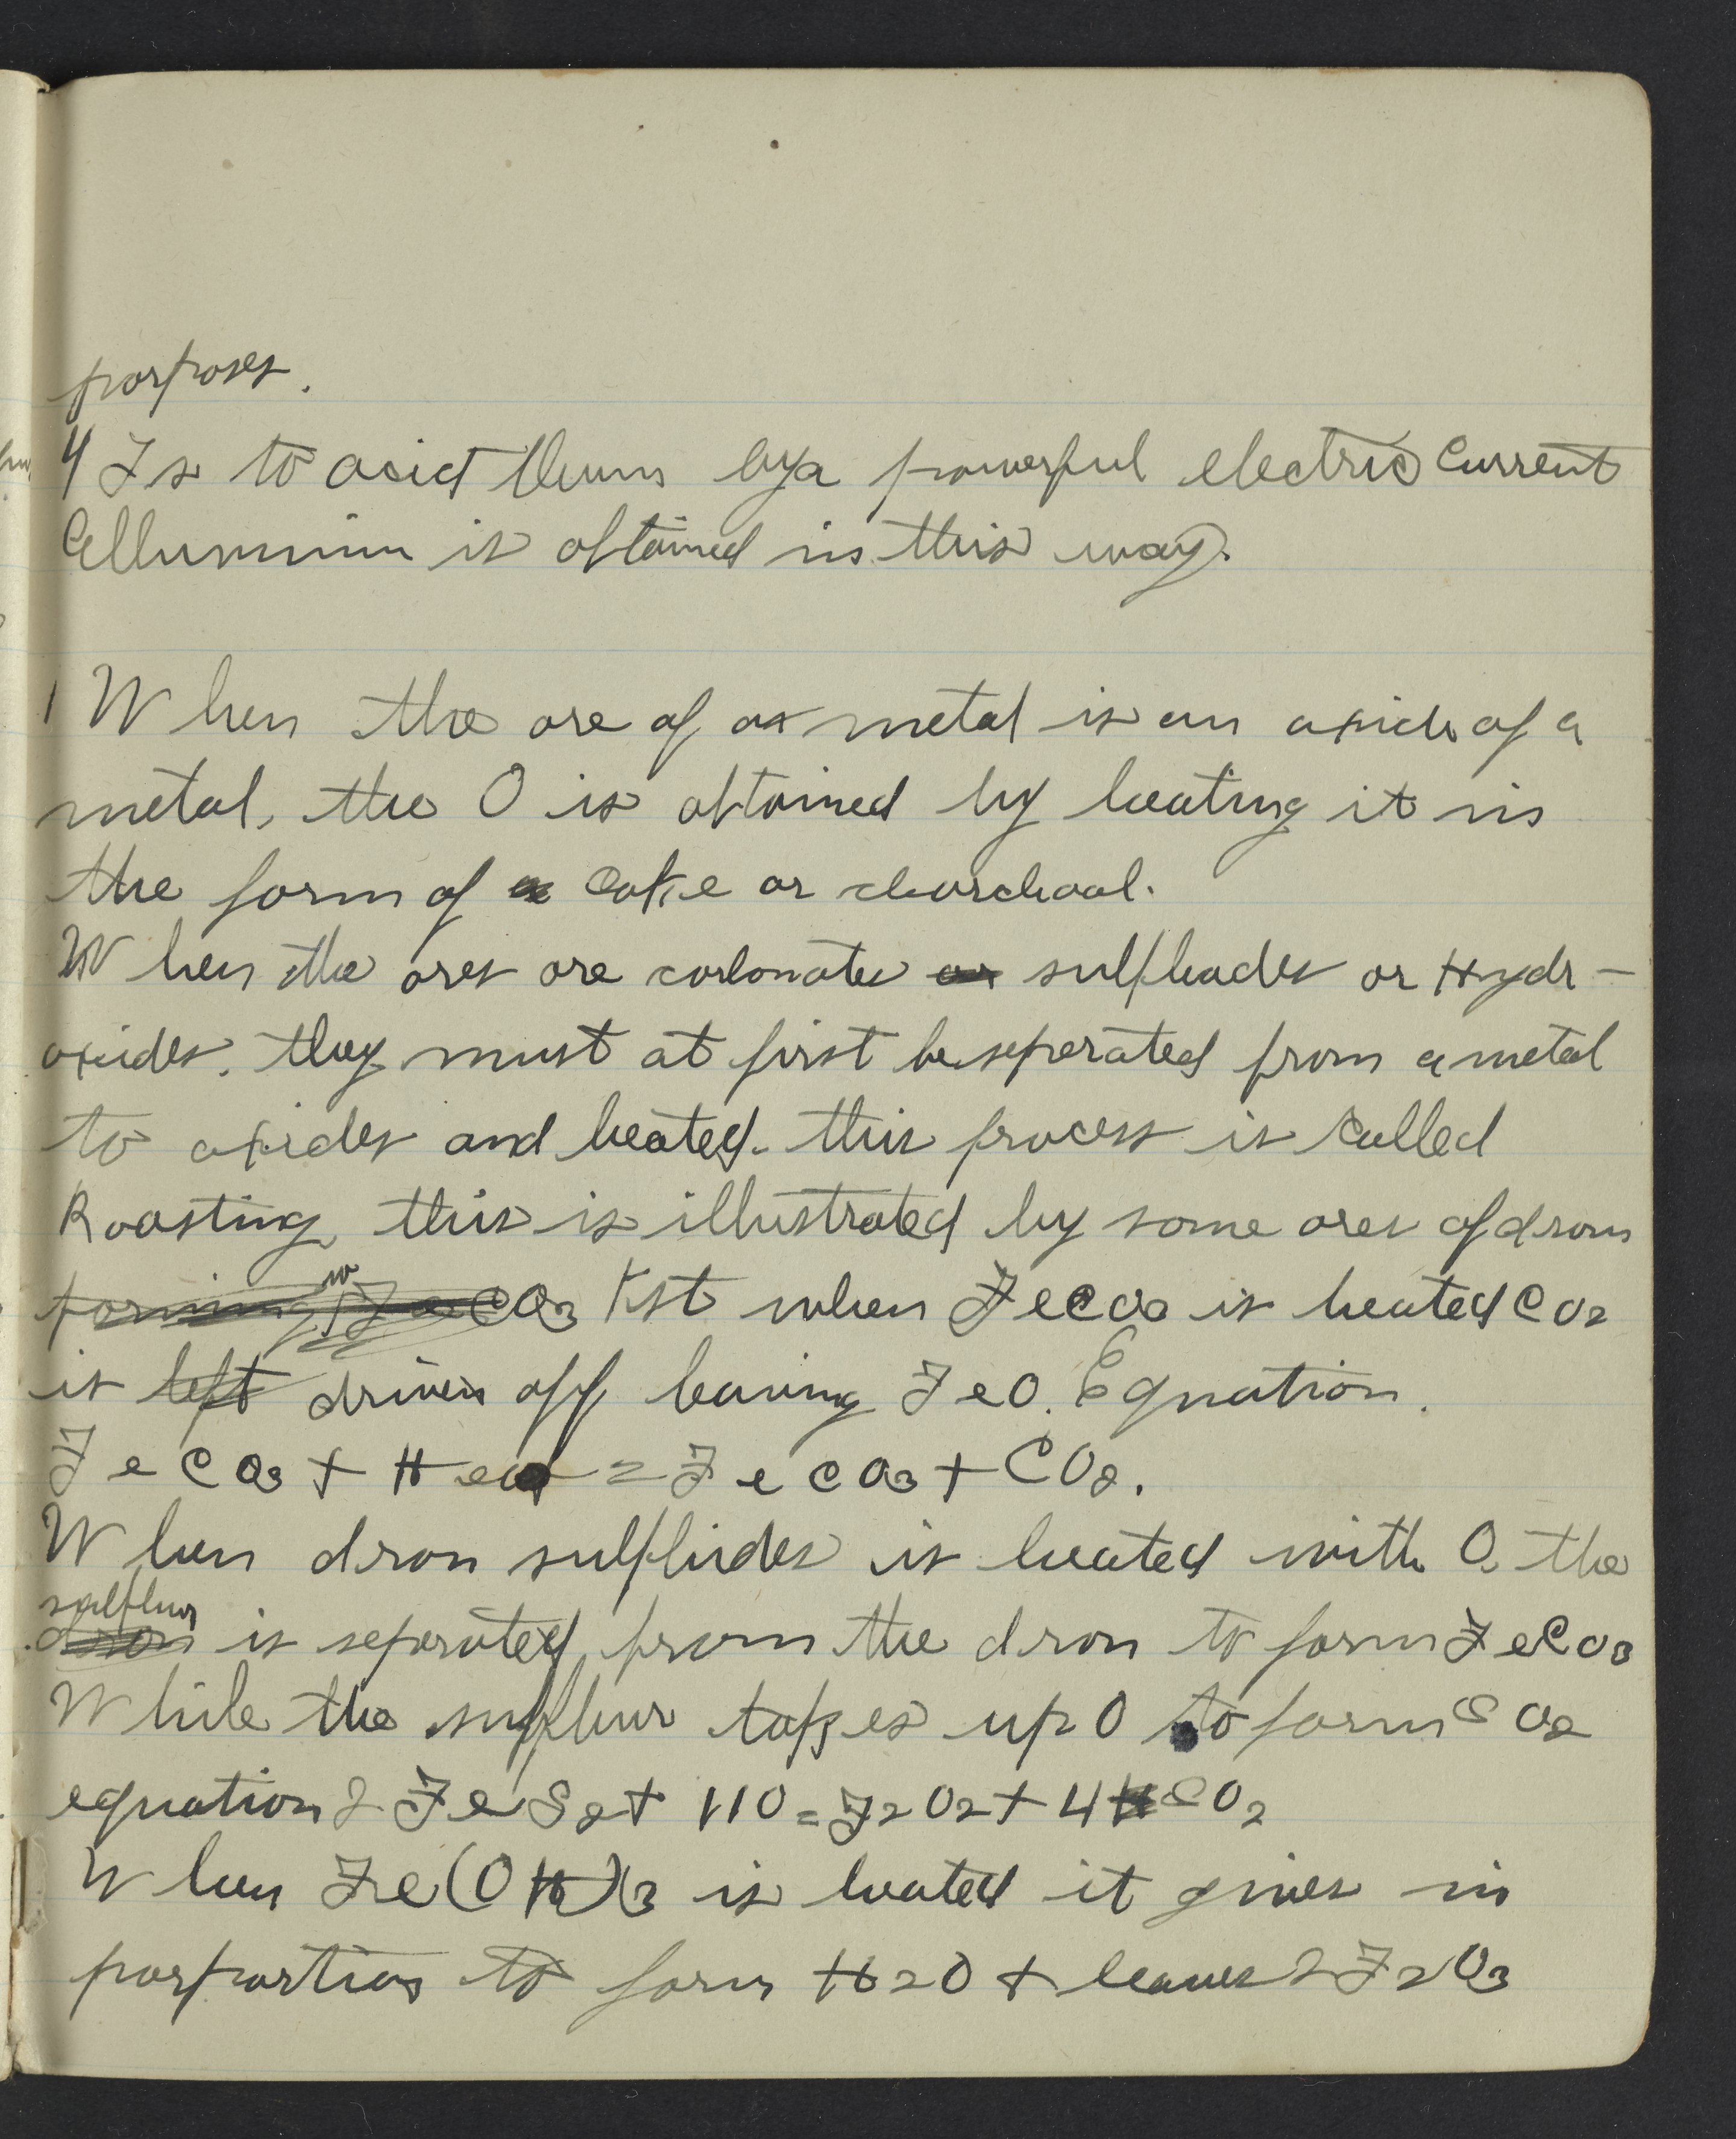 porposes.
4 Is to acid them by a powerful electric Current
Allumnim is obtained in this way.
1 When the ore of a metal is an oxide of a
metal, the O is obtained by heating it in
the form of Coke or charchoal.
When the ores are carbonates sulphades or Hydr-
oxides. they must at first be seperated from a metal
to oxides and heated. this process is called
Roasting this is illustrated by some ores of dron
forming FeCO3 1st when FeCO3 is heated CO2
is left driven off leaving FeO. Equation.
FeCO3 + Heat = FeCO3 + CO2.
When dron sulphides is heated with O. the
sulphur
dron is seperated from the dron to form FeCO3
While the sulphur takes up O to form SO2
equation 2 FeS2 + 110 = F2O2 + 4 SO2
When Fe(OH)3 is heated it gives in
porportion to form H2O + leaves 2F2O3